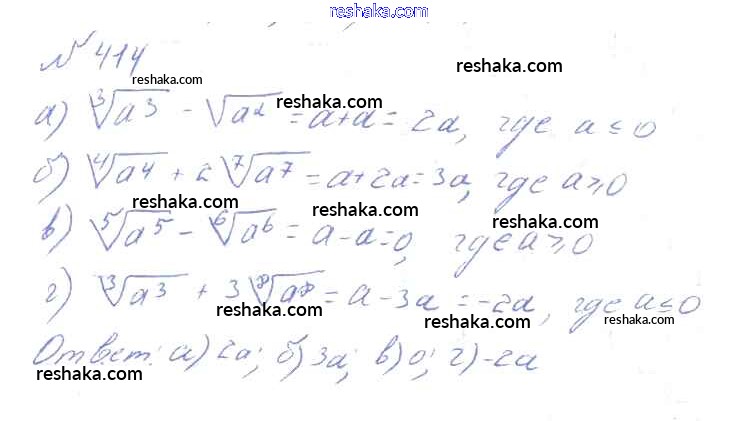 reshaka.com
№ 414
reshaka.com reshaka.com
а) ∛a³ - √a² = a+a = 2a, где a ≤ 0
reshaka.com reshaka.com
б) ⁴√a⁴ + 2 ⁷√a⁷ = a+2a = 3a, где a ≥ 0
reshaka.com reshaka.com reshaka.com
в) ⁵√a⁵ - ⁶√a⁶ = a-a = 0, где a ≥ 0
г) ∛a³ + 3 ⁸√a⁸ = a - 3a = -2a, где a ≤ 0
reshaka.com reshaka.com reshaka.com
Ответ: а) 2a; б) 3a; в) 0; г) -2a
reshaka.com